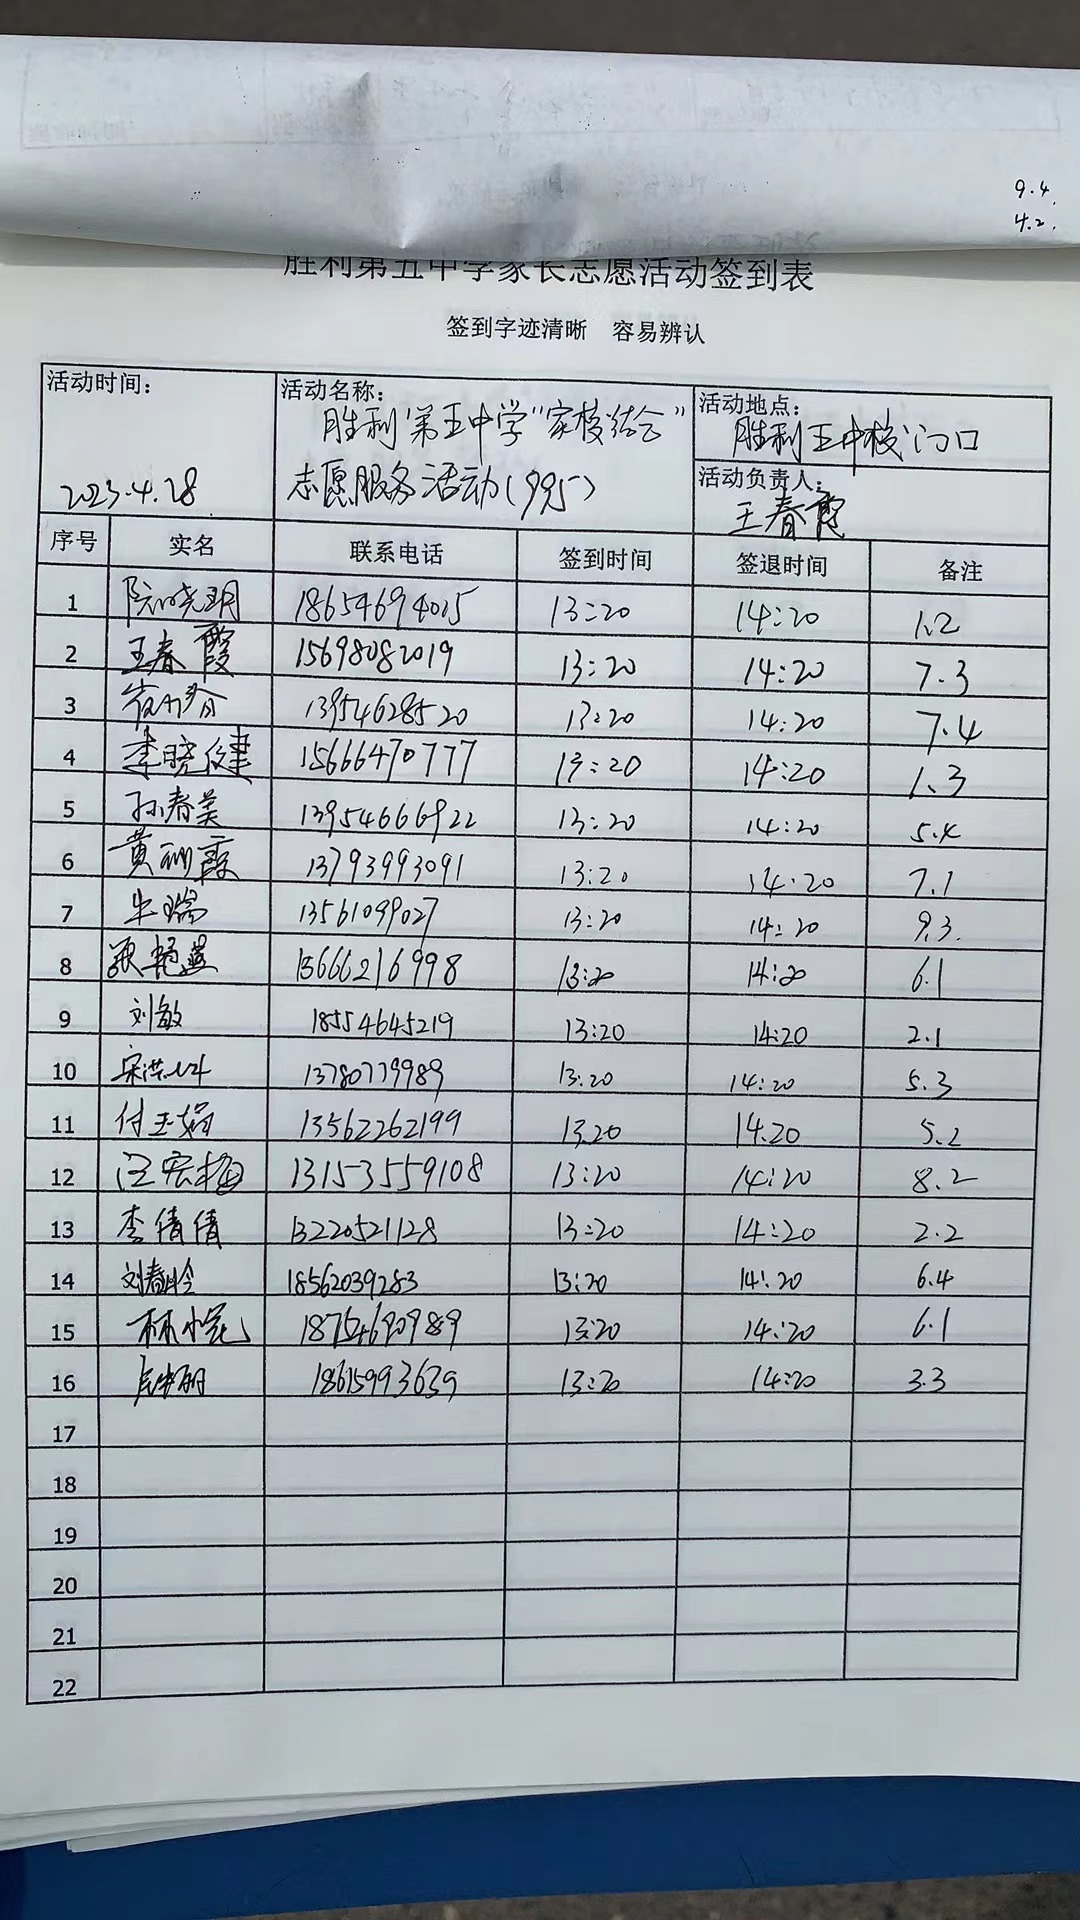 9.4
4.2
胜利第五中学家长志愿活动签到表
签到字迹清晰 容易辨认
活动时间: 2023.4.28
活动名称: 胜利第五中学“家校结合”
志愿服务活动(995)
活动地点: 胜利五中校门口
活动负责人: 王春霞
序号 实名 联系电话 签到时间 签退时间 备注
1 阮晓玥 18654694025 13:20 14:20 1.2
2 王春霞 15698082019 13:20 14:20 7.3
3 13954628520 13:20 14:20 7.4
4 李晓健 15666470777 13:20 14:20 1.3
5 孙春美 13954666922 13:20 14:20 5.4
6 黄丽霞 13793993091 13:20 14:20 7.1
7 朱瑞 13561099027 13:20 14:20 9.3
8 张艳燕 13666216998 13:20 14:20 6.1
9 刘敏 18554645219 13:20 14:20 2.1
10 13780779989 13:20 14:20 5.3
11 付玉娟 13562262199 13:20 14.20 5.2
12 汪宏梅 13153559108 13:20 14:20 8.2
13 李倩倩 13220521128 13:20 14:20 2.2
14 刘春玲 18562039283 13:20 14:20 6.4
15 18754690989 13:20 14:20 6.1
16 18615993639 13:20 14:20 3.3
17
18
19
20
21
22